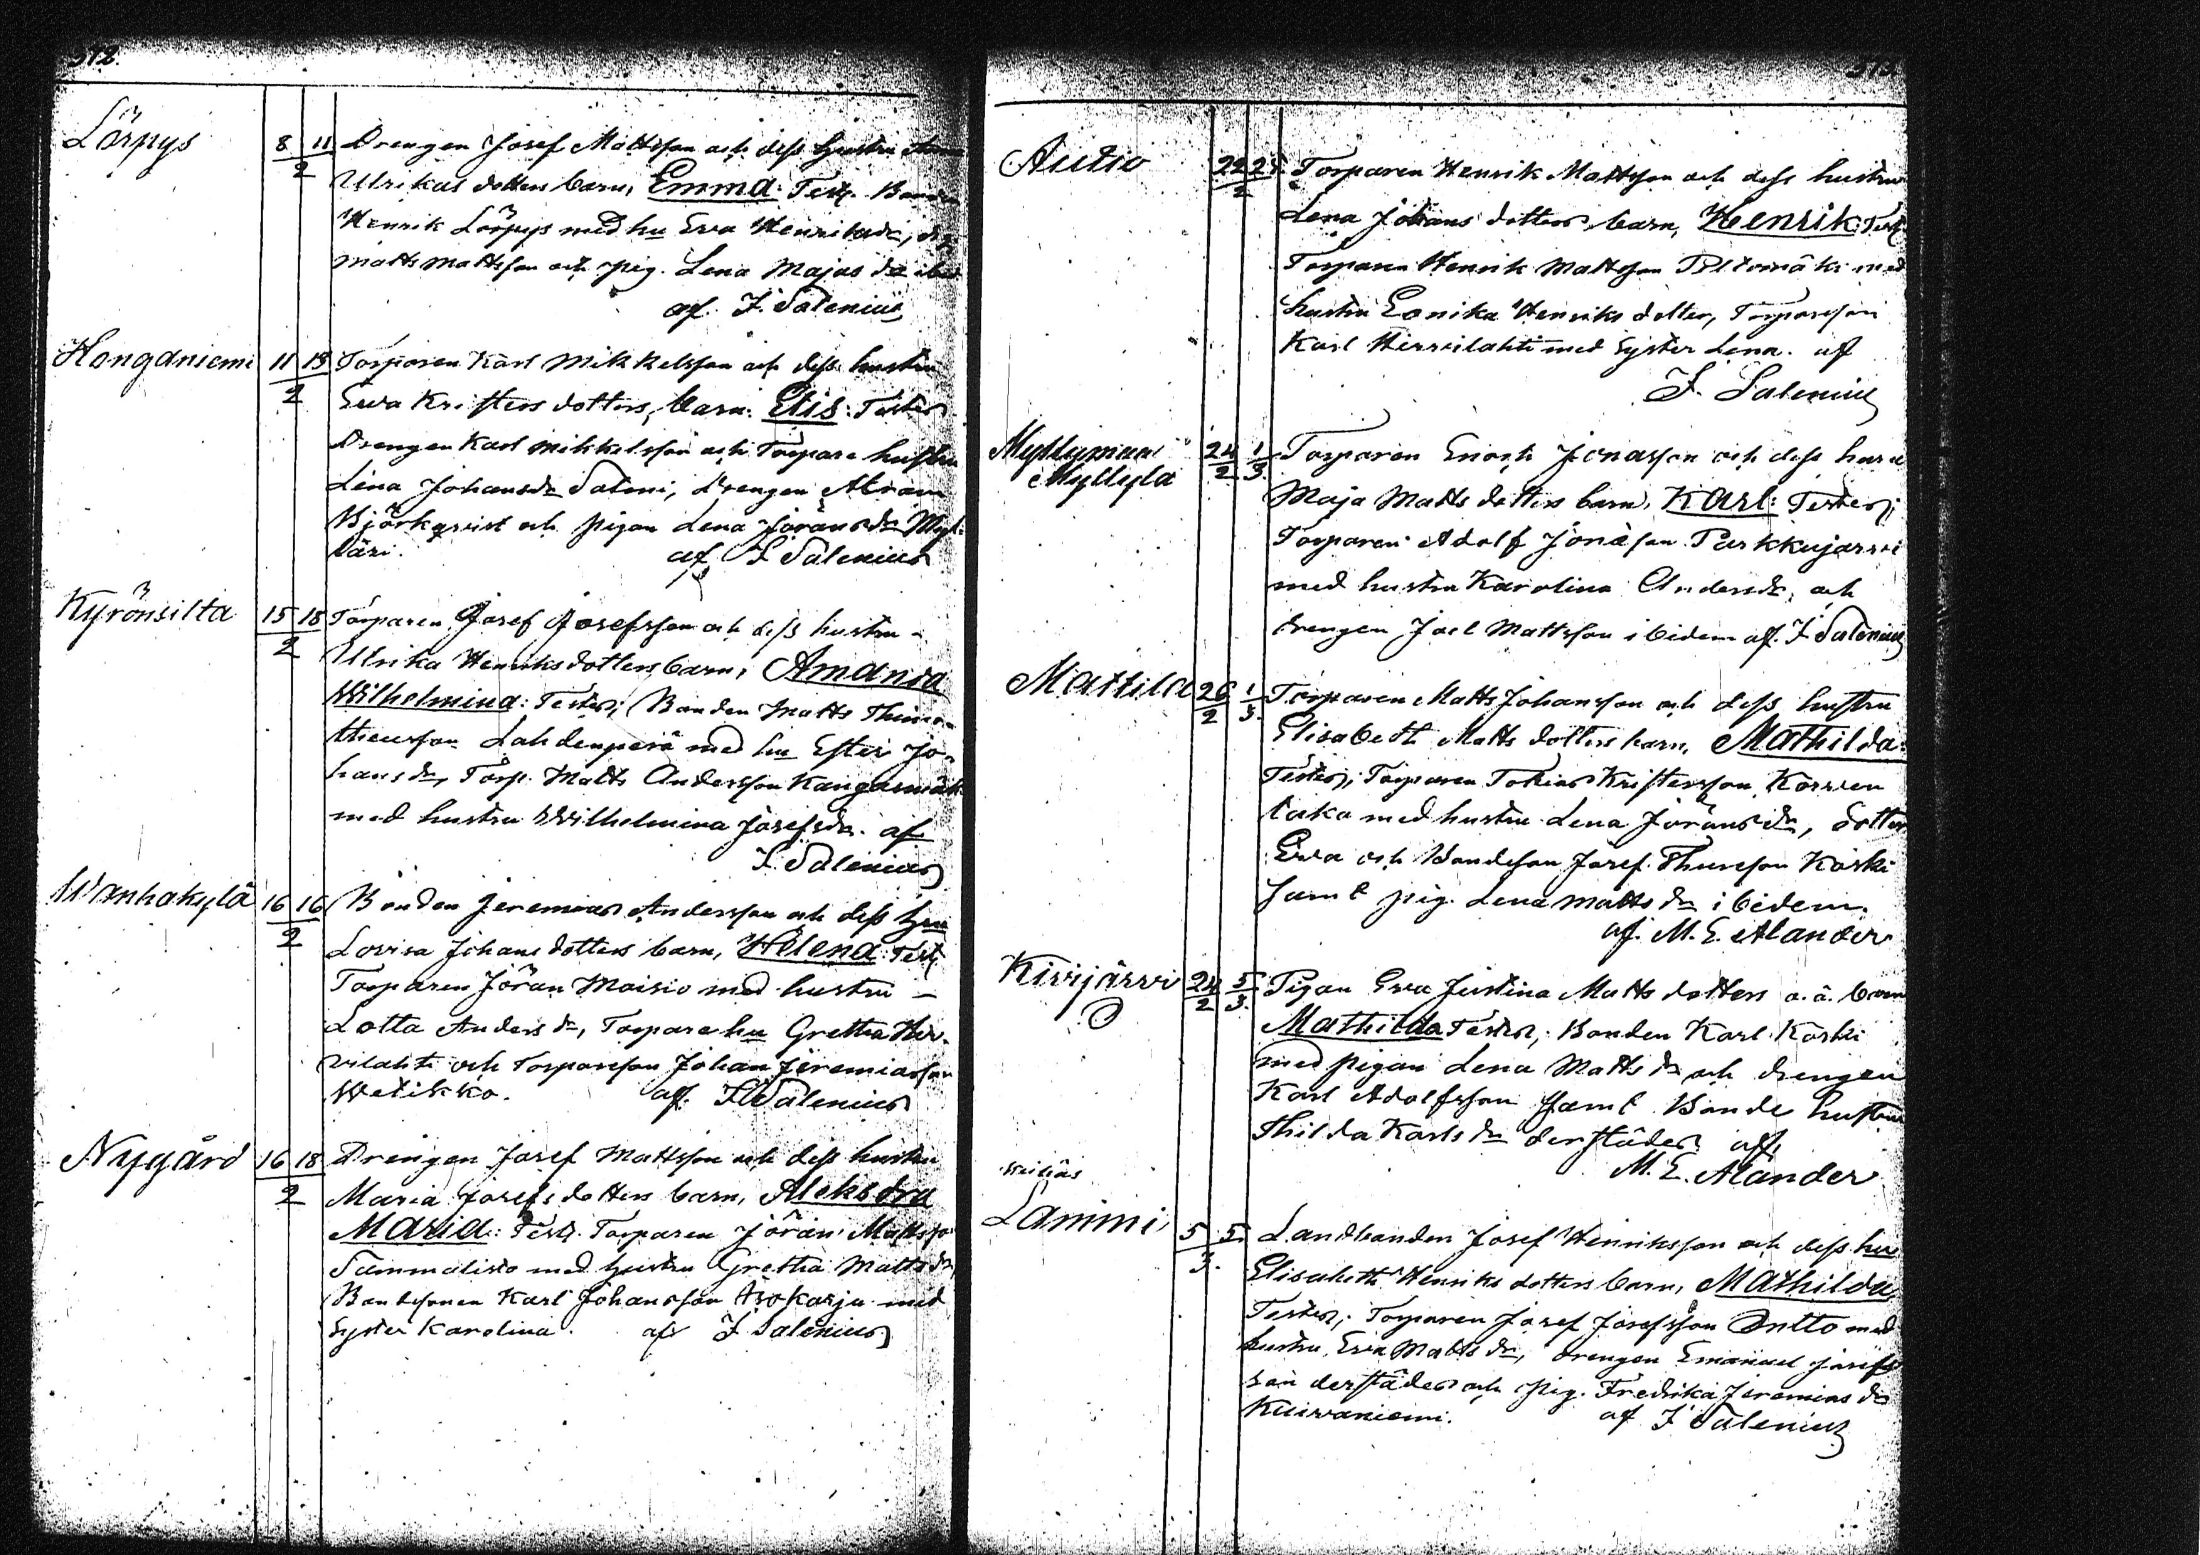 312.
Lörpys 8 11/2 Drengen Josef Mattsson och dess hustru Anna
Ulrikas dotters barn, Emma: Test. Bonden
Henrik Lörpys med hu Eva Henriksdr,
Matts Mattsson och pig. Lena Majas dr ibid
af. F. Salenius
Honganiemi 11 13/2 Torparen Karl Mikkelsson och dess hustru
Eva Kristers dotters, barn. Elis: Testes
Drengen Karl Mikkelsson och Torpare hustru
Lena Johansdr Salmi, Drengen Abram
Björkqvist och pigan Lena Jöransdr Myl-
läri. af F Salenius
Kyrönsilta 15 18/2 Torparen Josef Josefsson och dess hustru
Ulrika Henriksdotters barn, Amanda
Wilhelmina: Testes; Bonden Matts Thimo-
theusson Lahdenperä med hu Ester Jo-
hansdr, Torp. Matts Andersson Kangasmäki
med hustru Wilhelmina Josefsdr. af
F. Salenius
Wanhakylä 16 16/2 Bonden Jeremias Andersson och dess hru
Lovisa Johans dotters barn, Helena: Test
Torparen Jöran Maisio med hustru –
Lotta Anders dr, Torpare hu Gretha Hir-
vilahti och Torpareson Johan Jeremiasson
Wetikko. af. F. Salenius
Nygård 16 18/2 Drengen Josef Mattsson och dess hustru
Maria Josefs dotters barn, Aleksdra
Maria: Test. Torparen Jöran Mattsson
Tammalisto med hustru Gretha Matts dr,
Bondsonen Karl Johansson Isokorju med
Syster Karolina. af F Salenius
313.
Autio 22 25/2 Torparen Henrik Mattsson och dess hustru
Lena Johans dotters barn, Henrik: Test
Torparen Henrik Mattsson Peltomäki med
hustru Eonika Henriks dotter, Torpareson
Karl Hirvilahti med Syster Lena. af
F. Salenius
Myllymaa
i Myllylä 24/2 1/3 Torparen Enoch Jonasson och dess huru
Maja Matts dotters barn, Karl: Testes;
Torparen Adolf Jonasson Purkkujarvi
med hustru Karolina Andersdr, och
drengen Joel Mattsson ibidem af. F. Salenius
Mattila 26/2 1/3 Torparen Matts Johansson och dess hustru
Elisabeth Matts dotters barn, Mathilda:
Testes; Torparen Tobias Kristersson Korven
taka med hustru Lena Jöransdr, dotter
Eva och Bondeson Josef Thuresson Koski
samt pig. Lena Matts dr ibidem.
af. M. E. Alander
Kivijärvi 24/2 5/3 Pigan Eva Justina Matts dotters o. ä. barn
Mathilda Testes; Bonden Karl Koski
med pigan Lena Matts dr och drengen
Karl Adolfsson samt Bonde hustru
Thilda Karls dr derstädes af,
M. E. Alander
Lammi 5 5/3. Landbonden Josef Henriksson och dess hu
Elisabeth Henriks dotters barn, Mathilda,
Testes; Torparen Josef Josefsson Ontto med
hustru, Eva Matts dr, drengen Emanuel Josefs
son derstädes och pig. Fredrika Jeremias dr
Kuivaniemi. af F Salenius